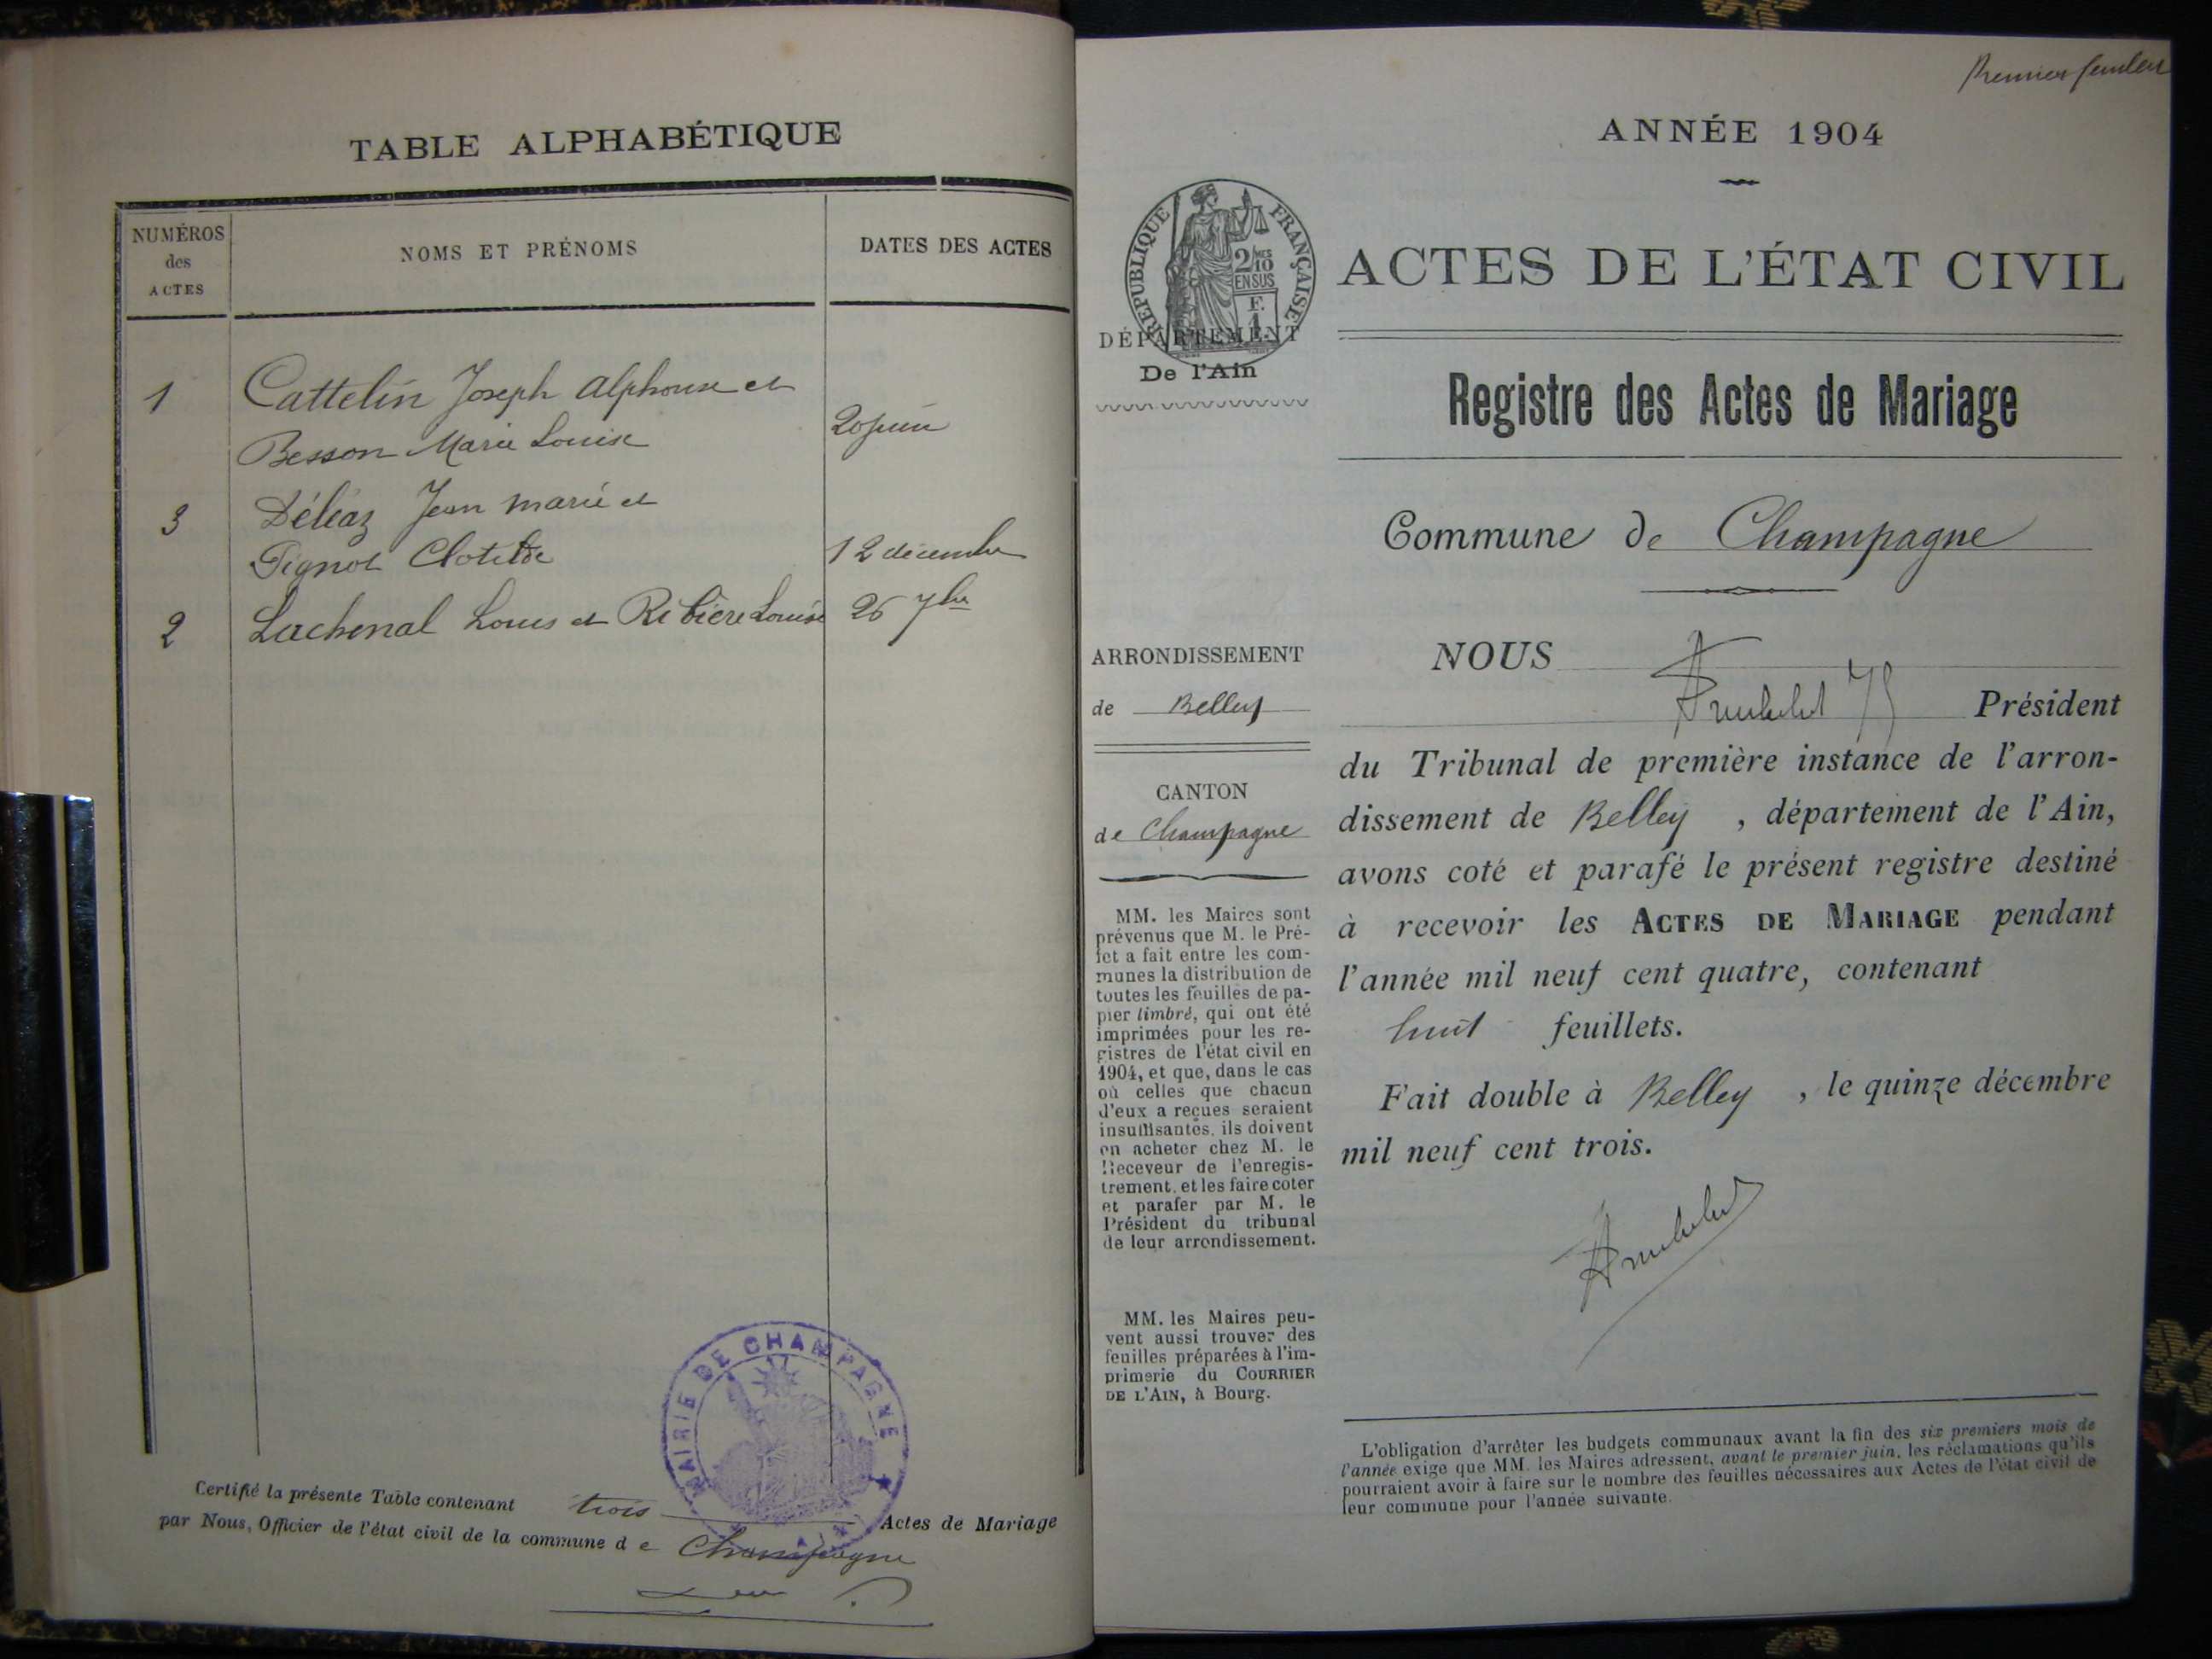 TABLE ALPHABÉTIQUE
NUMÉROS
des
ACTES
NOMS ET PRÉNOMS
DATES DES ACTES
1 Cattelin Joseph Alphonse et
Besson Marie Louise 20 juin
3 Déléaz Jean marie et
Pignol Clotilde 12 décembre
2 Lachenal Louis et Ribière Louise 26 7bre
Certifié la présente Table contenant trois Actes de Mariage
par Nous, Officier de l'état civil de la commune de Champagne
MAIRIE DE CHAMPAGNE
Premier feuillet
ANNÉE 1904
RÉPUBLIQUE FRANÇAISE
2 MES
10
EN SUS
F.
1.
ACTES DE L'ÉTAT CIVIL
DÉPARTEMENT
De l'Ain
Registre des Actes de Mariage
Commune de Champagne
ARRONDISSEMENT
de Belley
CANTON
de Champagne
MM. les Maires sont
prévenus que M. le Pré-
fet a fait entre les com-
munes la distribution de
toutes les feuilles de pa-
pier timbré, qui ont été
imprimées pour les re-
gistres de l'état civil en
1904, et que, dans le cas
où celles que chacun
d'eux a reçues seraient
insuffisantes, ils doivent
en acheter chez M. le
Receveur de l'enregis-
trement, et les faire coter
et parafer par M. le
Président du tribunal
de leur arrondissement.
MM. les Maires peu-
vent aussi trouver des
feuilles préparées à l'im-
primerie du COURRIER
DE L'AIN, à Bourg.
NOUS
Président
du Tribunal de première instance de l'arron-
dissement de Belley , département de l'Ain,
avons coté et parafé le présent registre destiné
à recevoir les ACTES DE MARIAGE pendant
l'année mil neuf cent quatre, contenant
huit feuillets.
Fait double à Belley , le quinze décembre
mil neuf cent trois.
L'obligation d'arrêter les budgets communaux avant la fin des six premiers mois de
l'année exige que MM. les Maires adressent, avant le premier juin, les réclamations qu'ils
pourraient avoir à faire sur le nombre des feuilles nécessaires aux Actes de l'état civil de
leur commune pour l'année suivante.